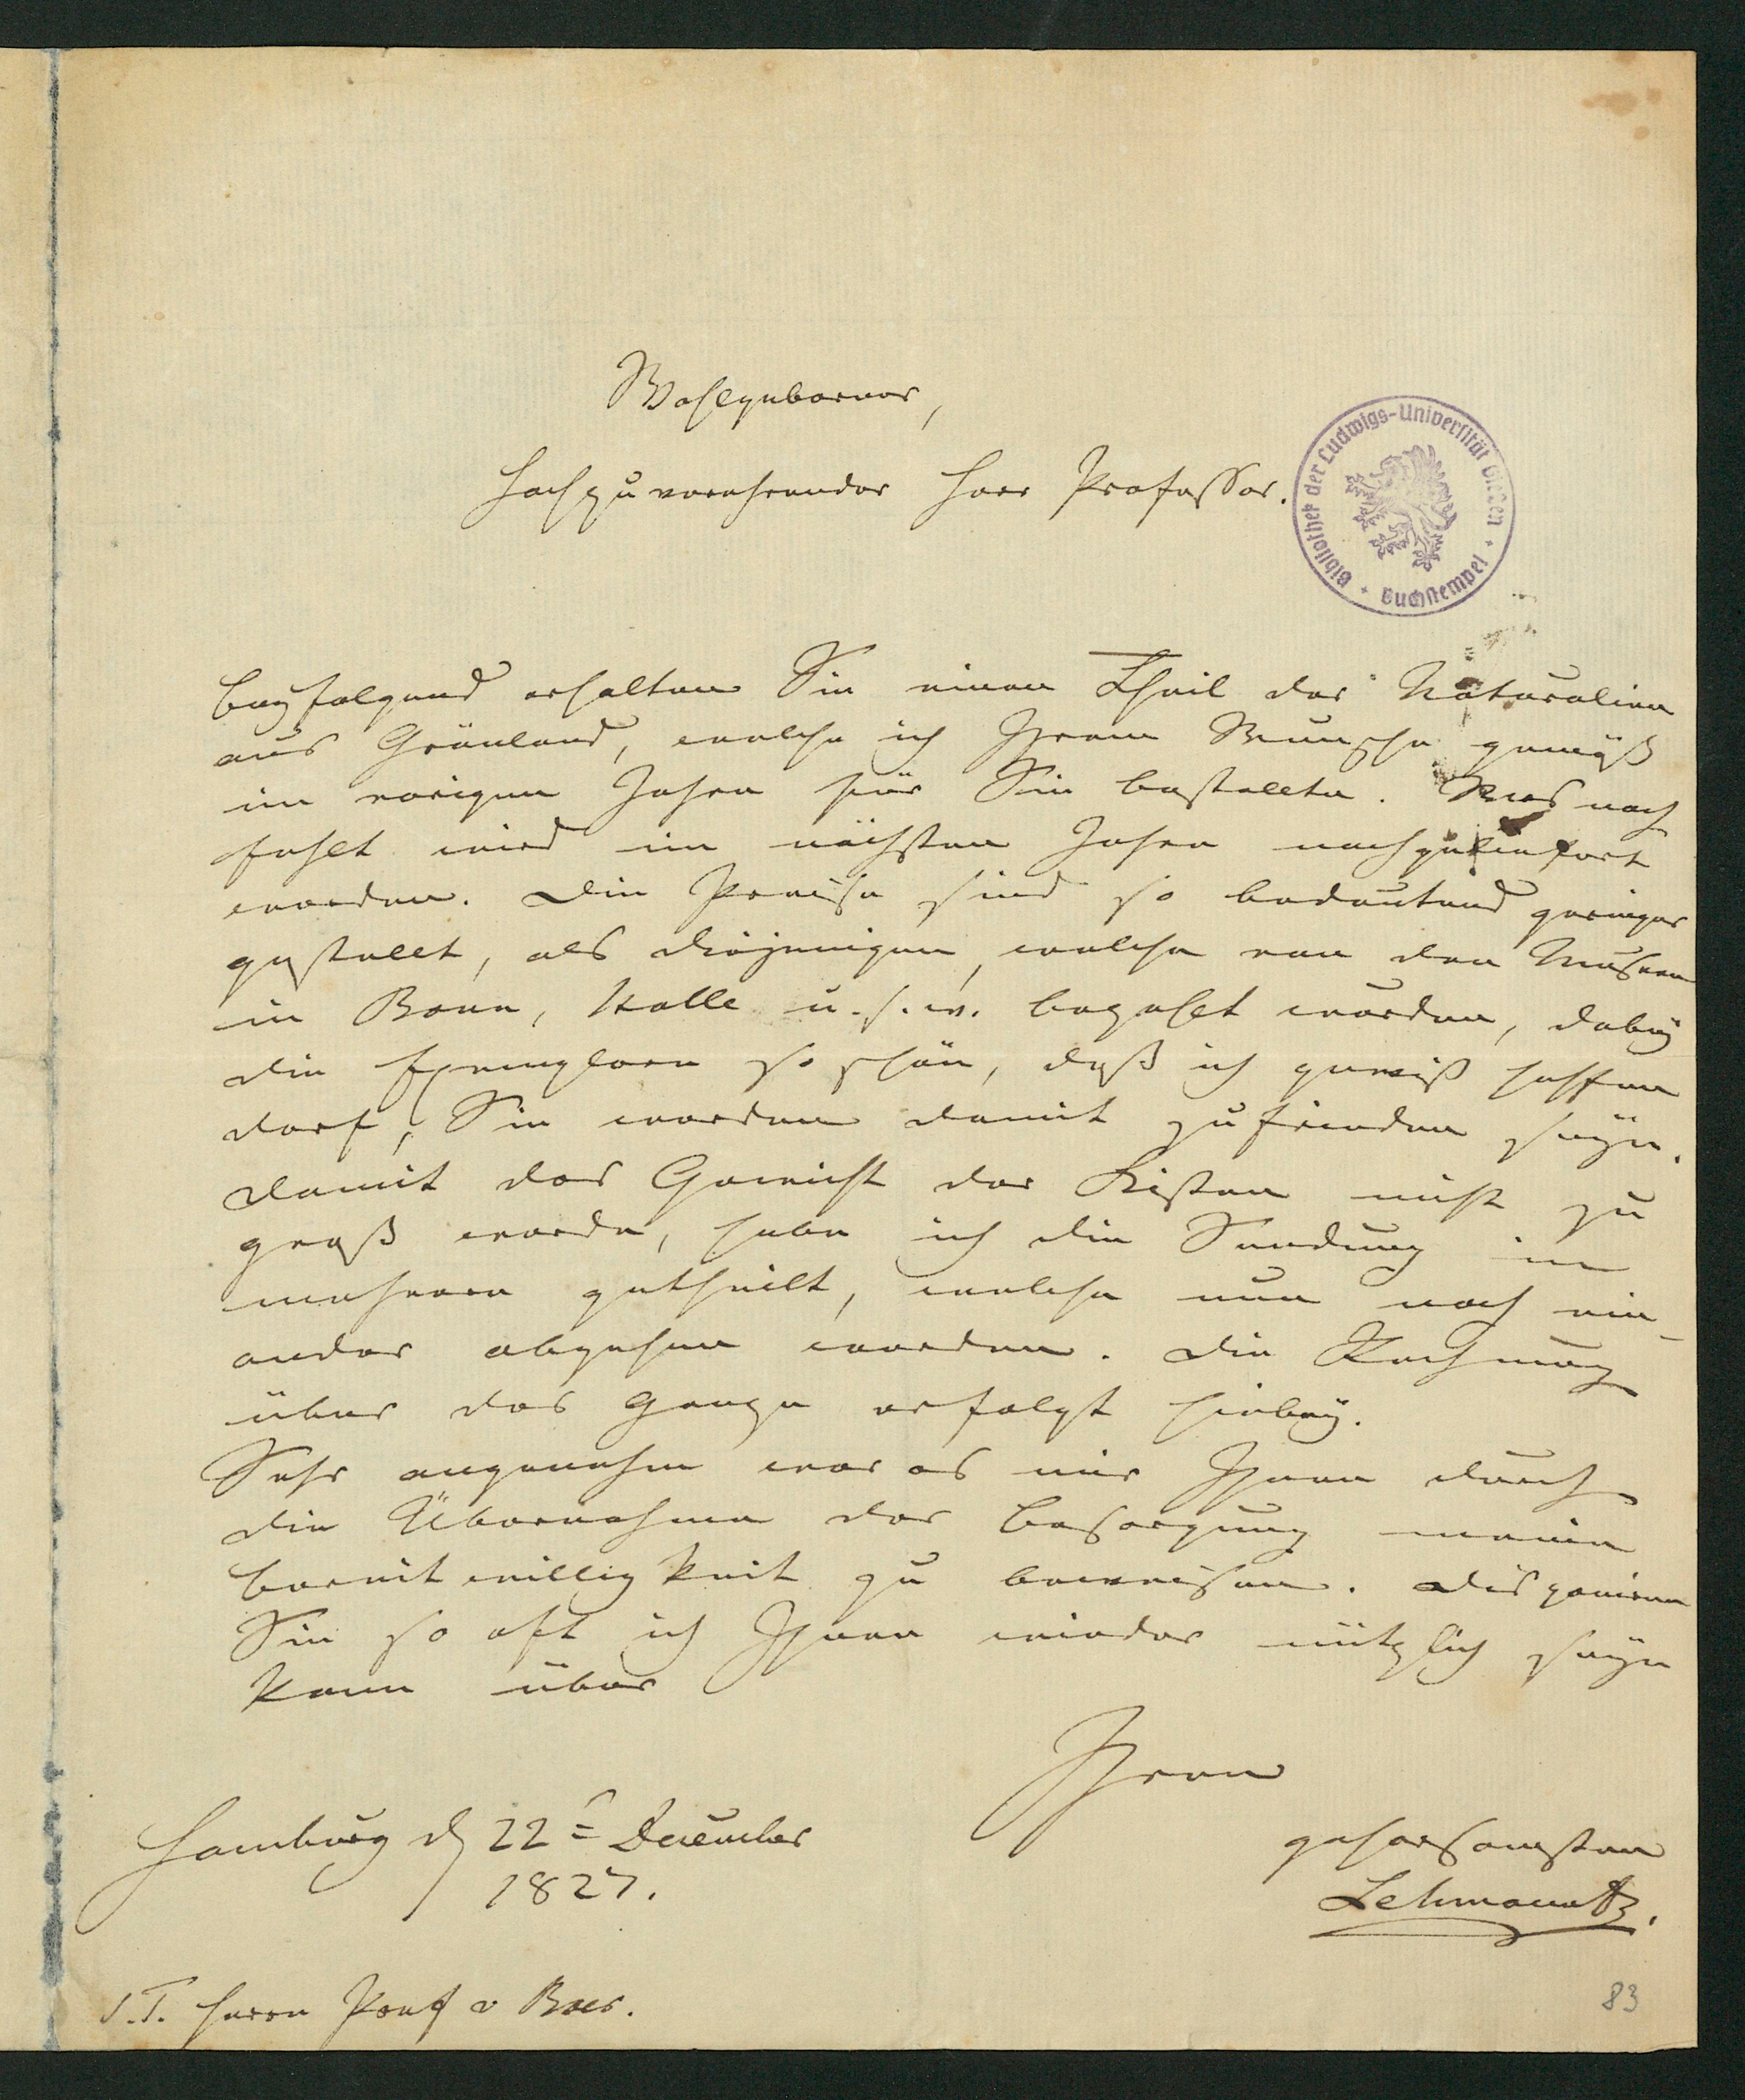 Wohlgeborner,
Hochzuverehrender Herr Professor.
Bibliothek der Ludwigs-Universität Gießen
Buchstempel
Beyfolgend erhalten Sie einen Theil der Naturalien
aus Grönland, welche ich Ihrem Wunsche gemäß
im vorigen Jahre für Sie bestellte. Was noch
fehlt wird im nächsten Jahre nachgeliefert
werden. Die Preise sind so bedeutend geringer
gestellt, als diejenigen, welche von den Museen
in Bonn, Halle u.s.w. bezahlt wurden, dabey
die Exemplare so schön, daß ich gewiß hoffen
darf, Sie werden damit zufrieden seyn.
Damit das Gewicht der Kisten nicht zu
groß werde, habe ich die Sendung in
mehrere getheilt, welche nun nach ein-
ander abgehen werden. Die Rechnung
über das Ganze erfolgt hiebey.
Sehr angenehm war es mir Ihnen durch
die Übernahme der Besorgung meine
Bereitwilligkeit zu beweisen. Disponiren
Sie so oft ich Ihnen wieder nützlich seyn
kann über
Ihren
gehorsamsten
Lehmann
Hamburg d 22= December
1827.
S.T. Herrn Prof v Baer.
83